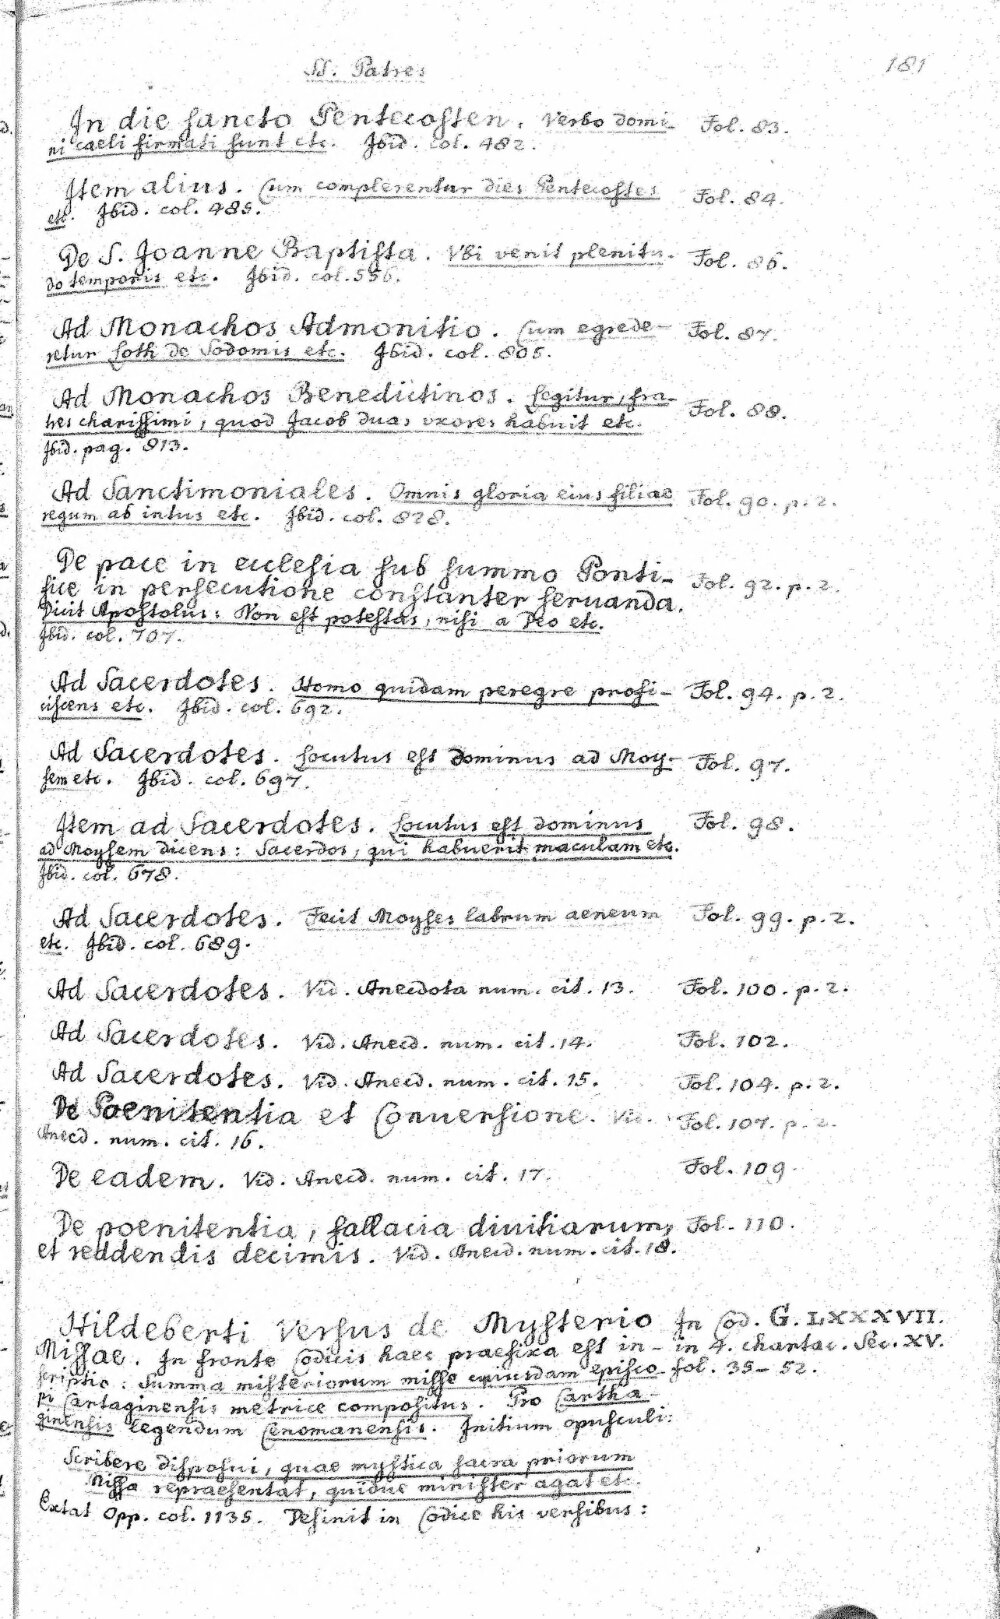 SS. Patres 181
In die sancto Pentecosten. Verbo domi- Fol. 83.
ni caeli firmati sunt etc. Ibid. col. 482.
Item alius. Cum complerentur dies Pentecostes Fol. 84.
etc. Ibid. col. 485.
De S. Joanne Baptista. Vbi venit plenitu- Fol. 86.
do temporis etc. Ibid. col. 556.
Ad Monachos Admonitio. Cum egrede- Fol. 87.
retur Loth de Sodomis etc. Ibid. col. 805.
Ad Monachos Benedictinos. Legitur, fra- Fol. 88.
tres charissimi, quod Jacob duas uxores habuit etc.
Ibid. pag. 813.
Ad Sanctimoniales. Omnis gloria eius filiae Fol. 90. p. 2.
regum ab intus etc. Ibid. col. 828.
De pace in ecclesia sub summo Ponti- Fol. 92. p. 2.
fice in persecutione constanter seruanda.
Dicit Apostolus: Non est potestas, nisi a Deo etc.
Ibid. col. 707.
Ad Sacerdotes. Homo quidam peregre profi- Fol. 94. p. 2.
ciscens etc. Ibid. col. 692.
Ad Sacerdotes. Locutus est dominus ad Moy- Fol. 97.
sem etc. Ibid. col. 697.
Item ad Sacerdotes. Locutus est dominus Fol. 98.
ad Moysem dicens: Sacerdos, qui habuerit maculam etc.
Ibid. col. 678.
Ad Sacerdotes. Fecit Moyses labrum aeneum Fol. 99. p. 2.
etc. Ibid. col. 689.
Ad Sacerdotes. Vid. Anecdota num. cit. 13. Fol. 100. p. 2.
Ad Sacerdotes. Vid. Anecd. num. cit. 14. Fol. 102.
Ad Sacerdotes. Vid. Anecd. num. cit. 15. Fol. 104. p. 2.
De Poenitentia et Conuersione. Vid. Fol. 107. p. 2.
Anecd. num. cit. 16.
De eadem. Vid. Anecd. num. cit. 17. Fol. 109.
De poenitentia, fallacia diuitiarum, Fol. 110.
et reddendis decimis. Vid. Anecd. num. cit. 18.
Hildeberti Versus de Mysterio In Cod. G. LXXXVII.
Missae. In fronte Codicis haec praefixa est in- in 4. chartac. Sec. XV.
scriptio: Summa misteriorum misse cuiusdam episco- fol. 35-52.
pi Cartaginensis metrice compositus. Pro Cartha-
ginensis legendum Cenomanensis. Initium opusculi:
Scribere disposui, quae mystica sacra priorum
Missa repraesentat, quidue minister agat etc.
Extat Opp. col. 1135. Desinit in Codice his versibus: